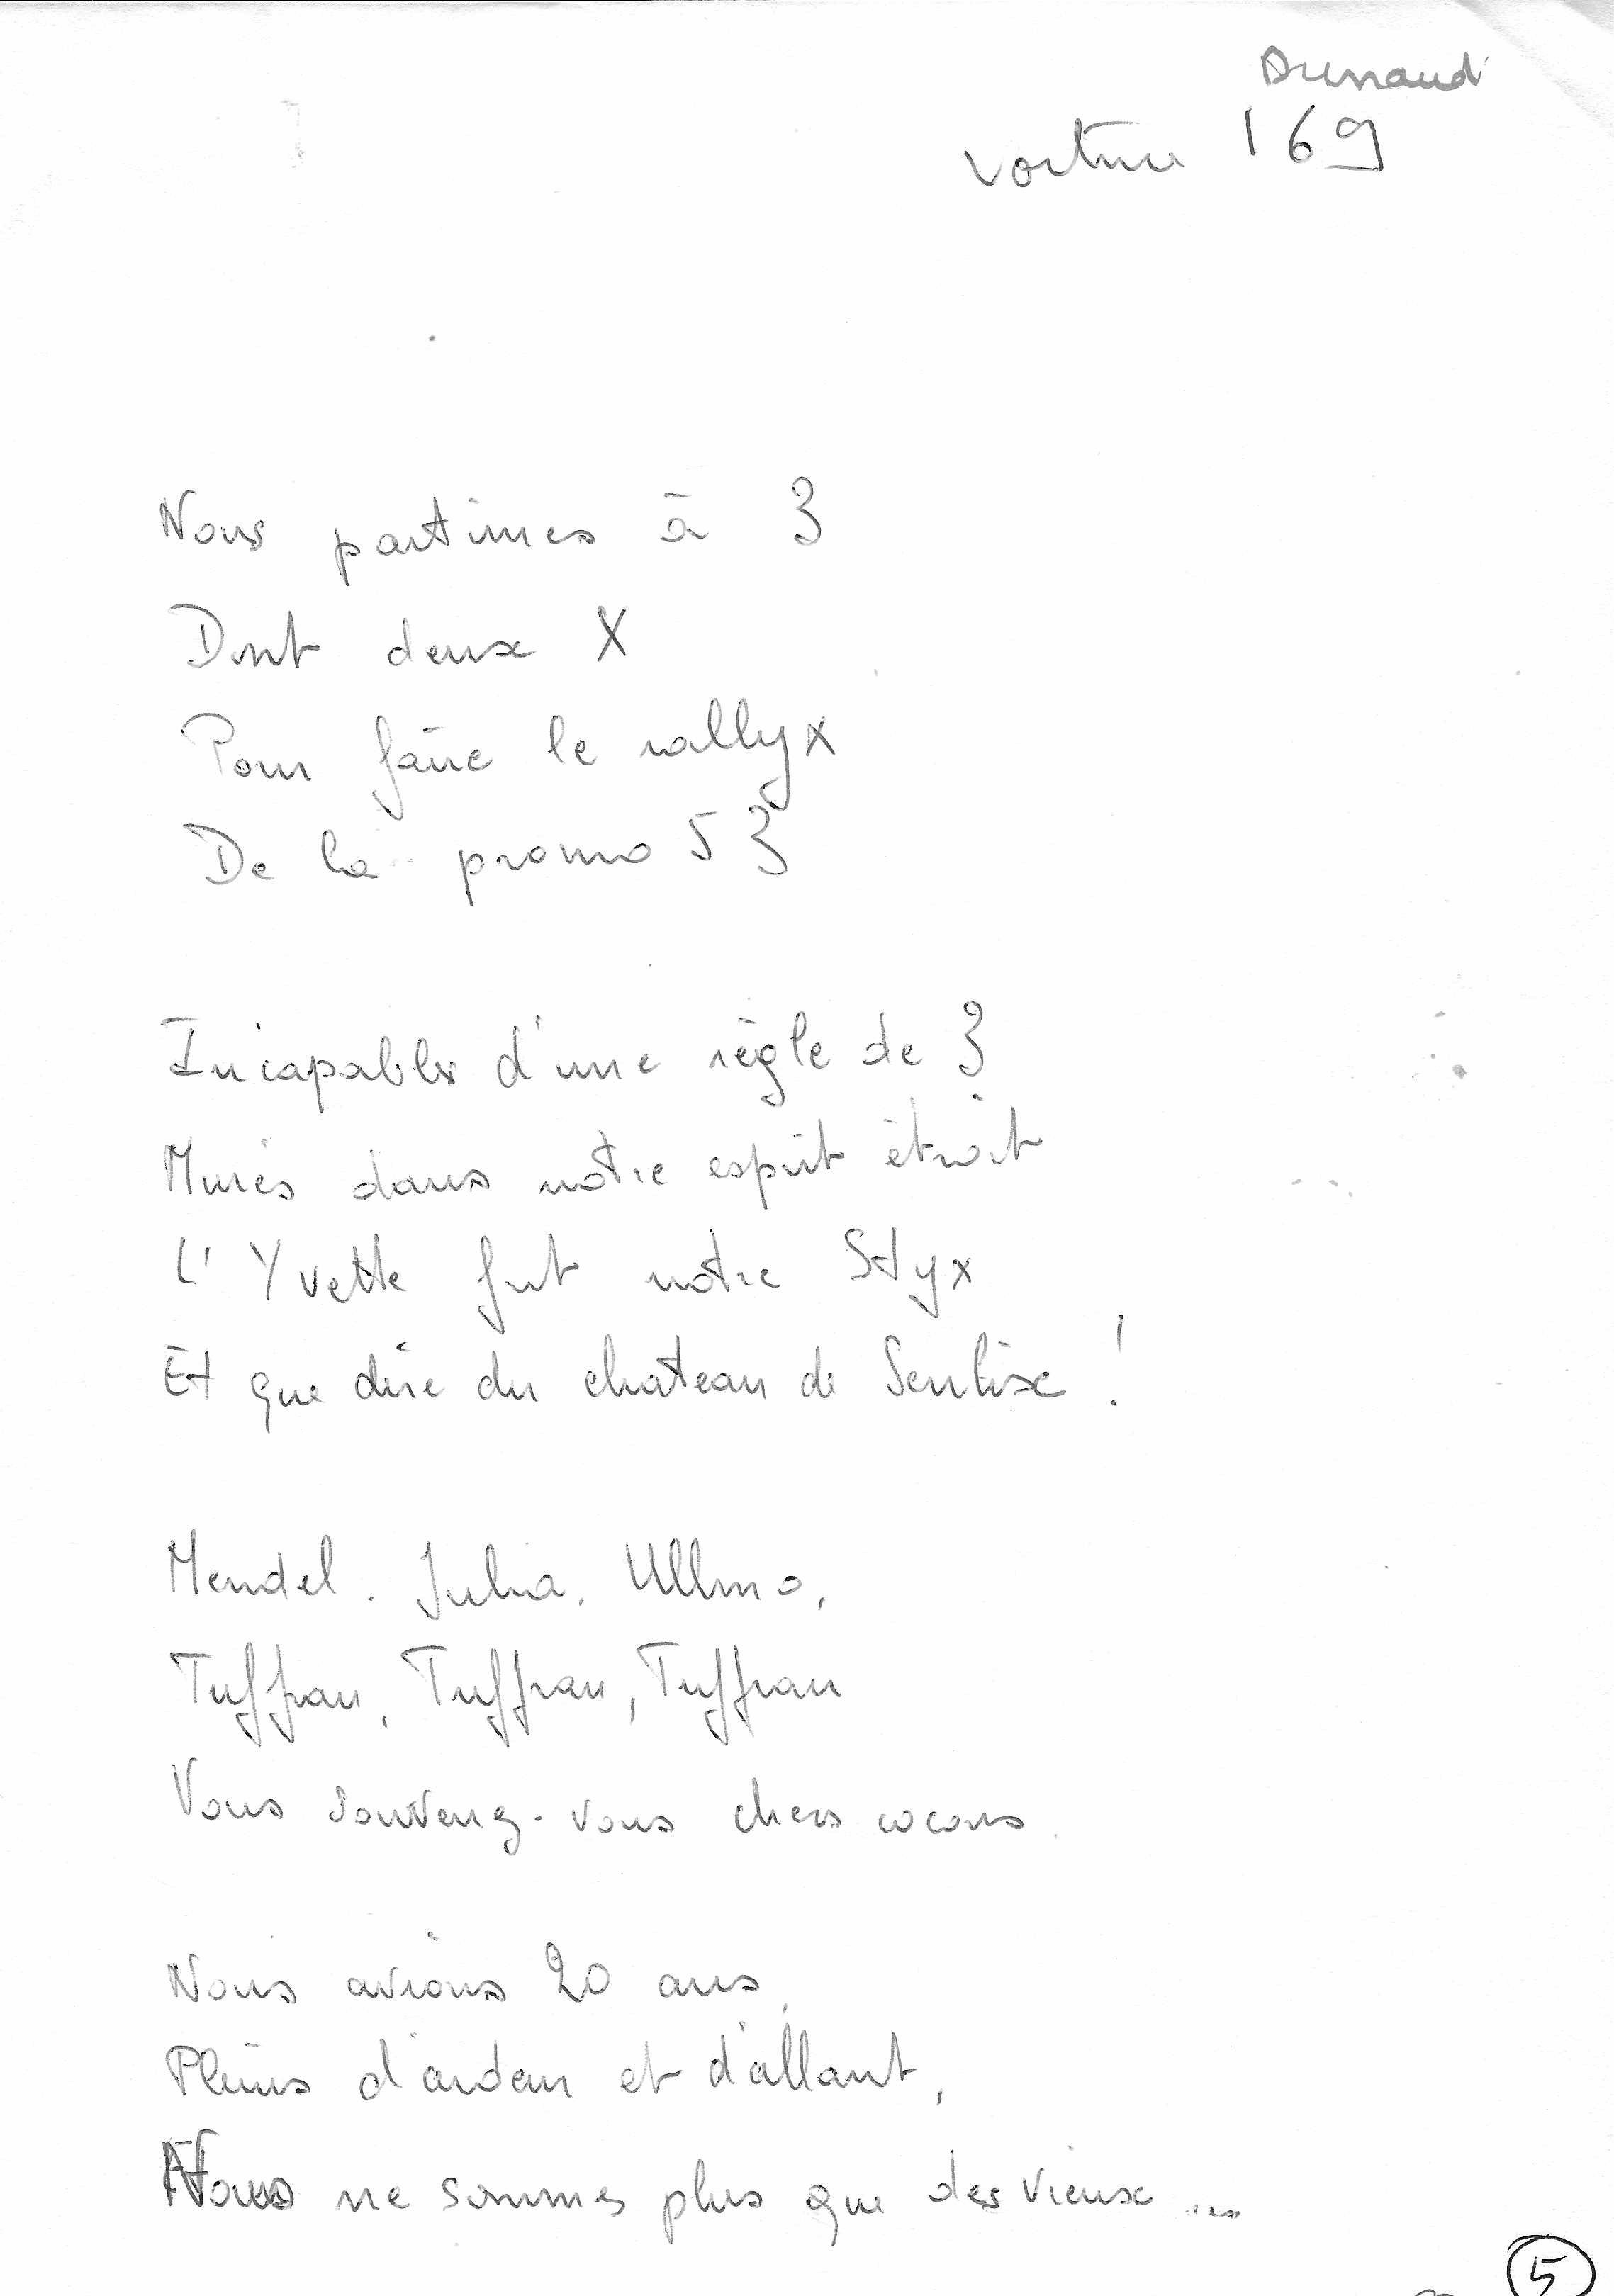 voiture 169
Nous partimes à 3
Dont deux X
Pour faire le rallyx
De la promo 53
Incapables d'une règle de 3
Murés dans notre esprit étroit
L'Yvette fut notre Styx
Et que dire du chateau de Senlix !
Mendel. Julia. Ullmo,
Tuffrau, Tuffrau, Tuffrau
Vous souvenez-vous chers cocons.
Nous avions 20 ans,
Pleins d'ardeur et d'allant,
Nous ne sommes plus que des vieux ...
5